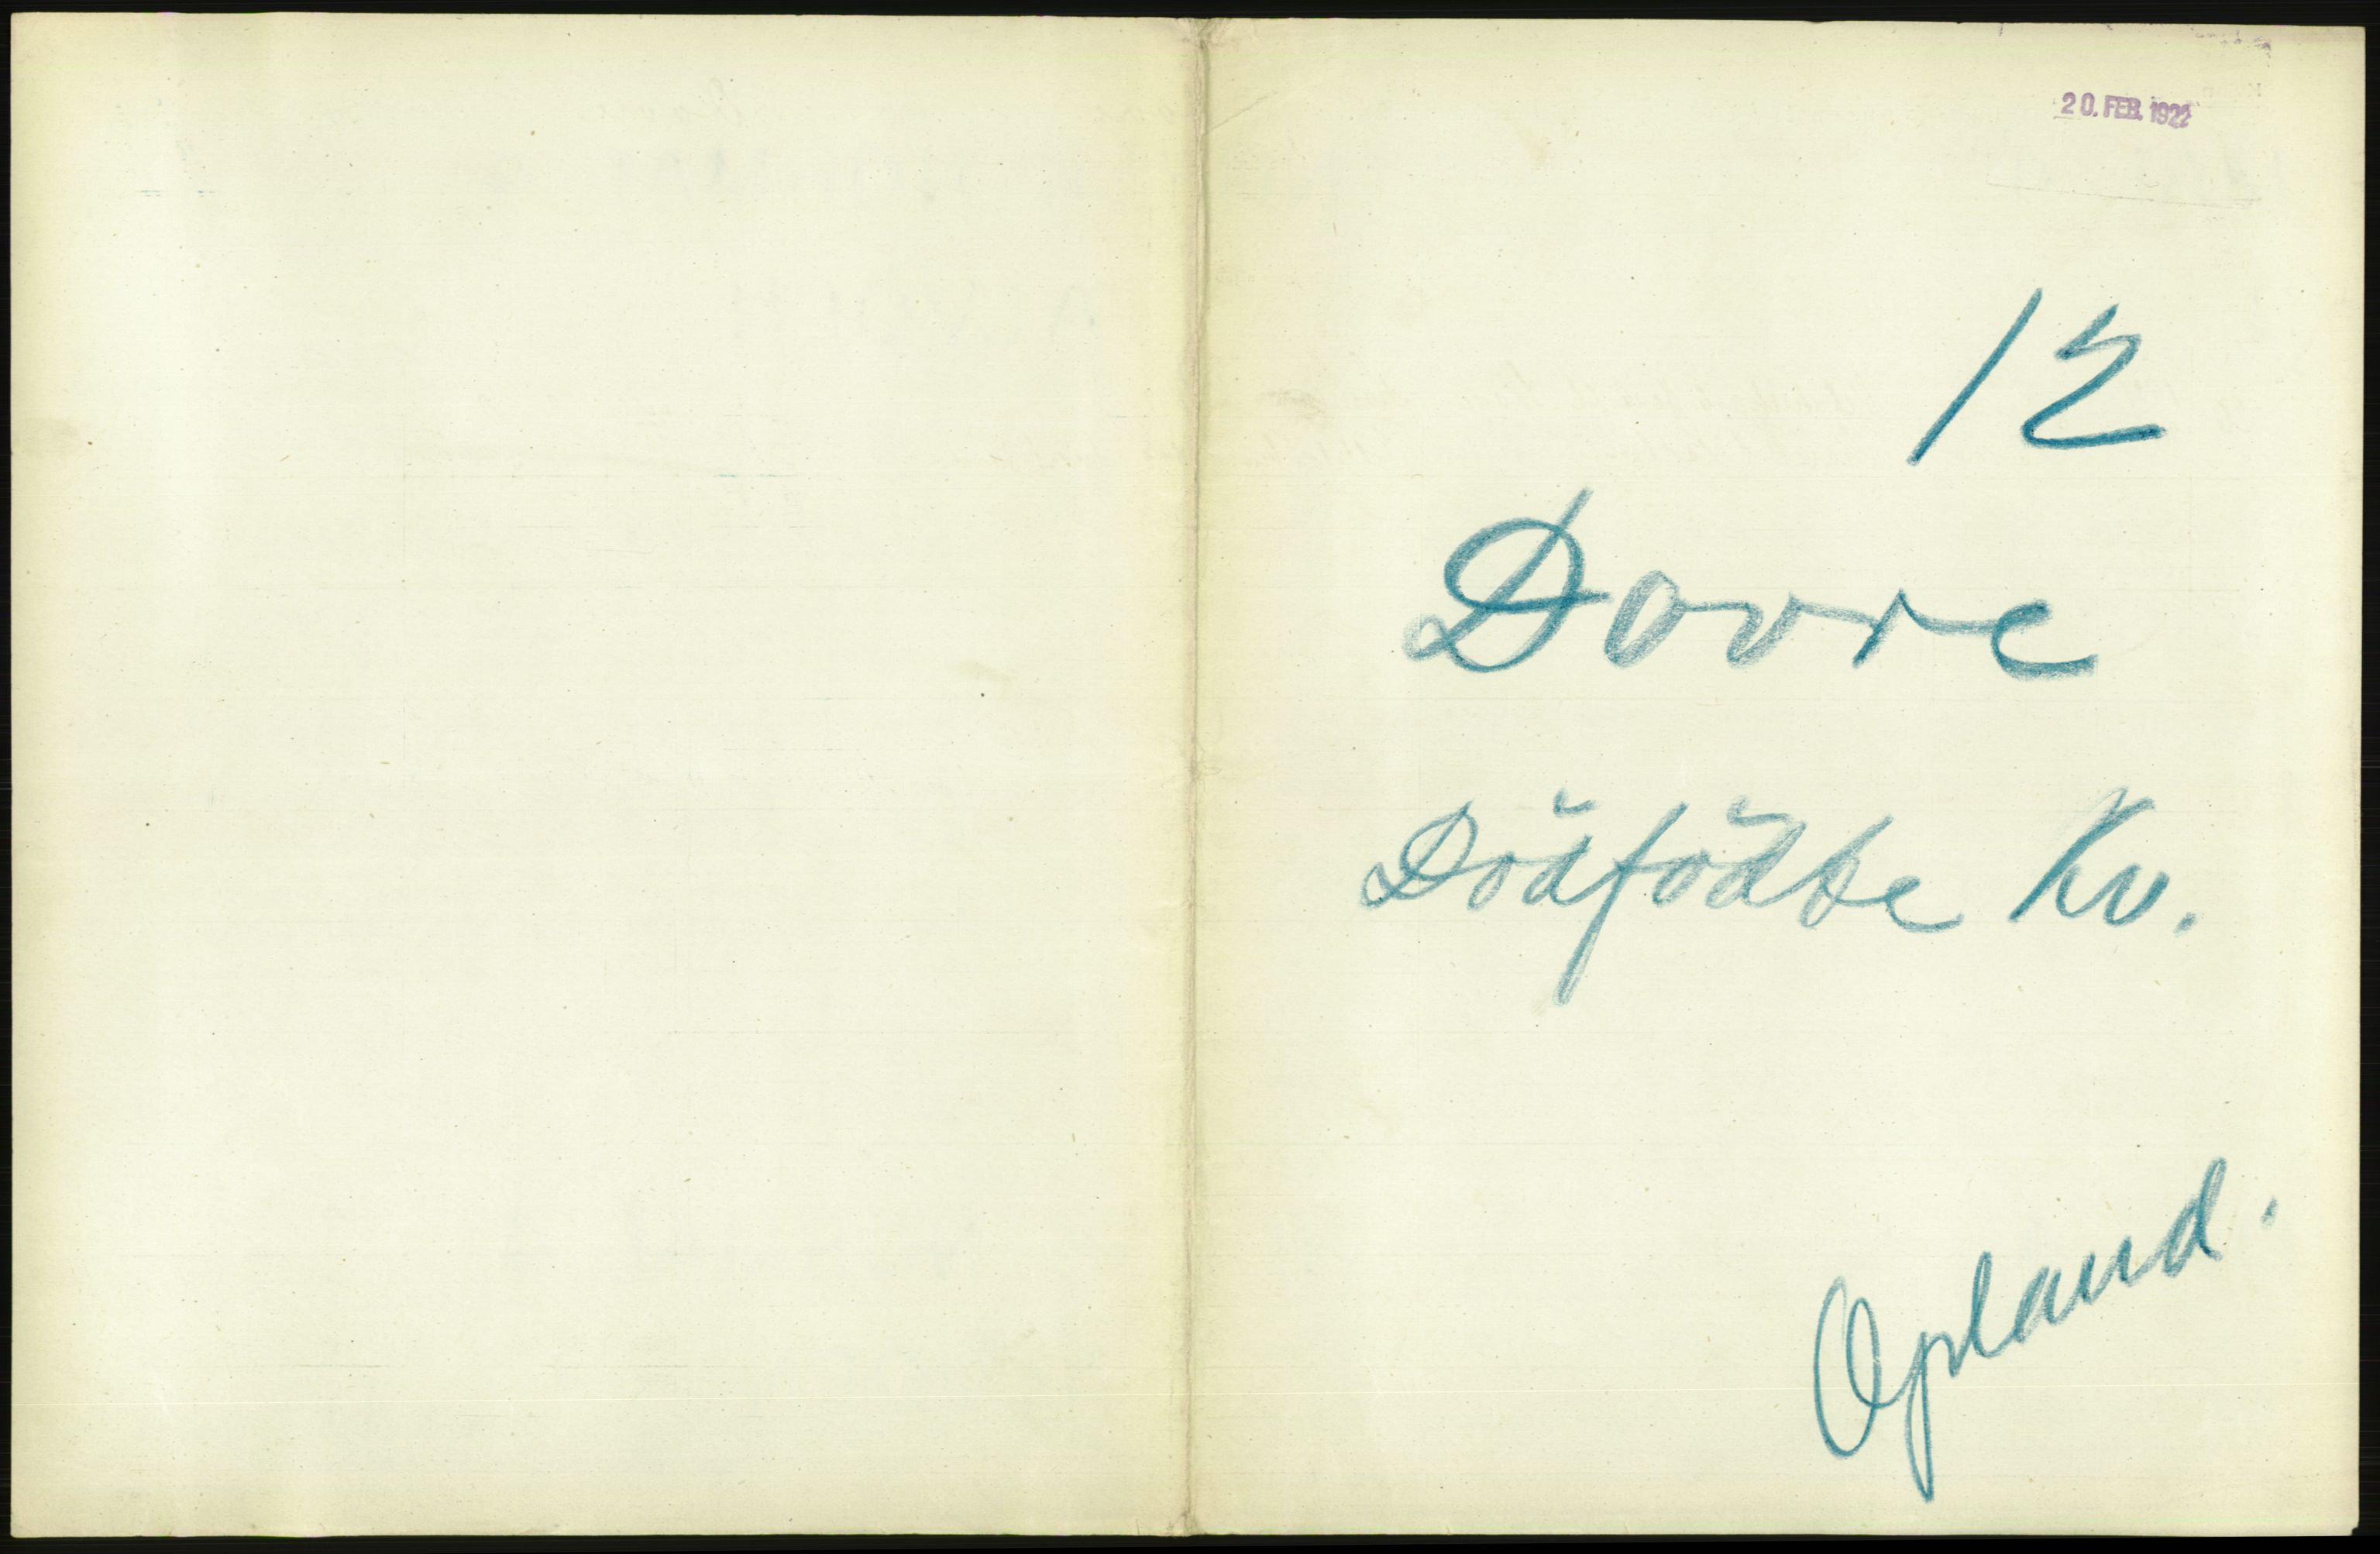 20. FEB. 1922
12
Dovre
Dödfödte Kv.
Opland.